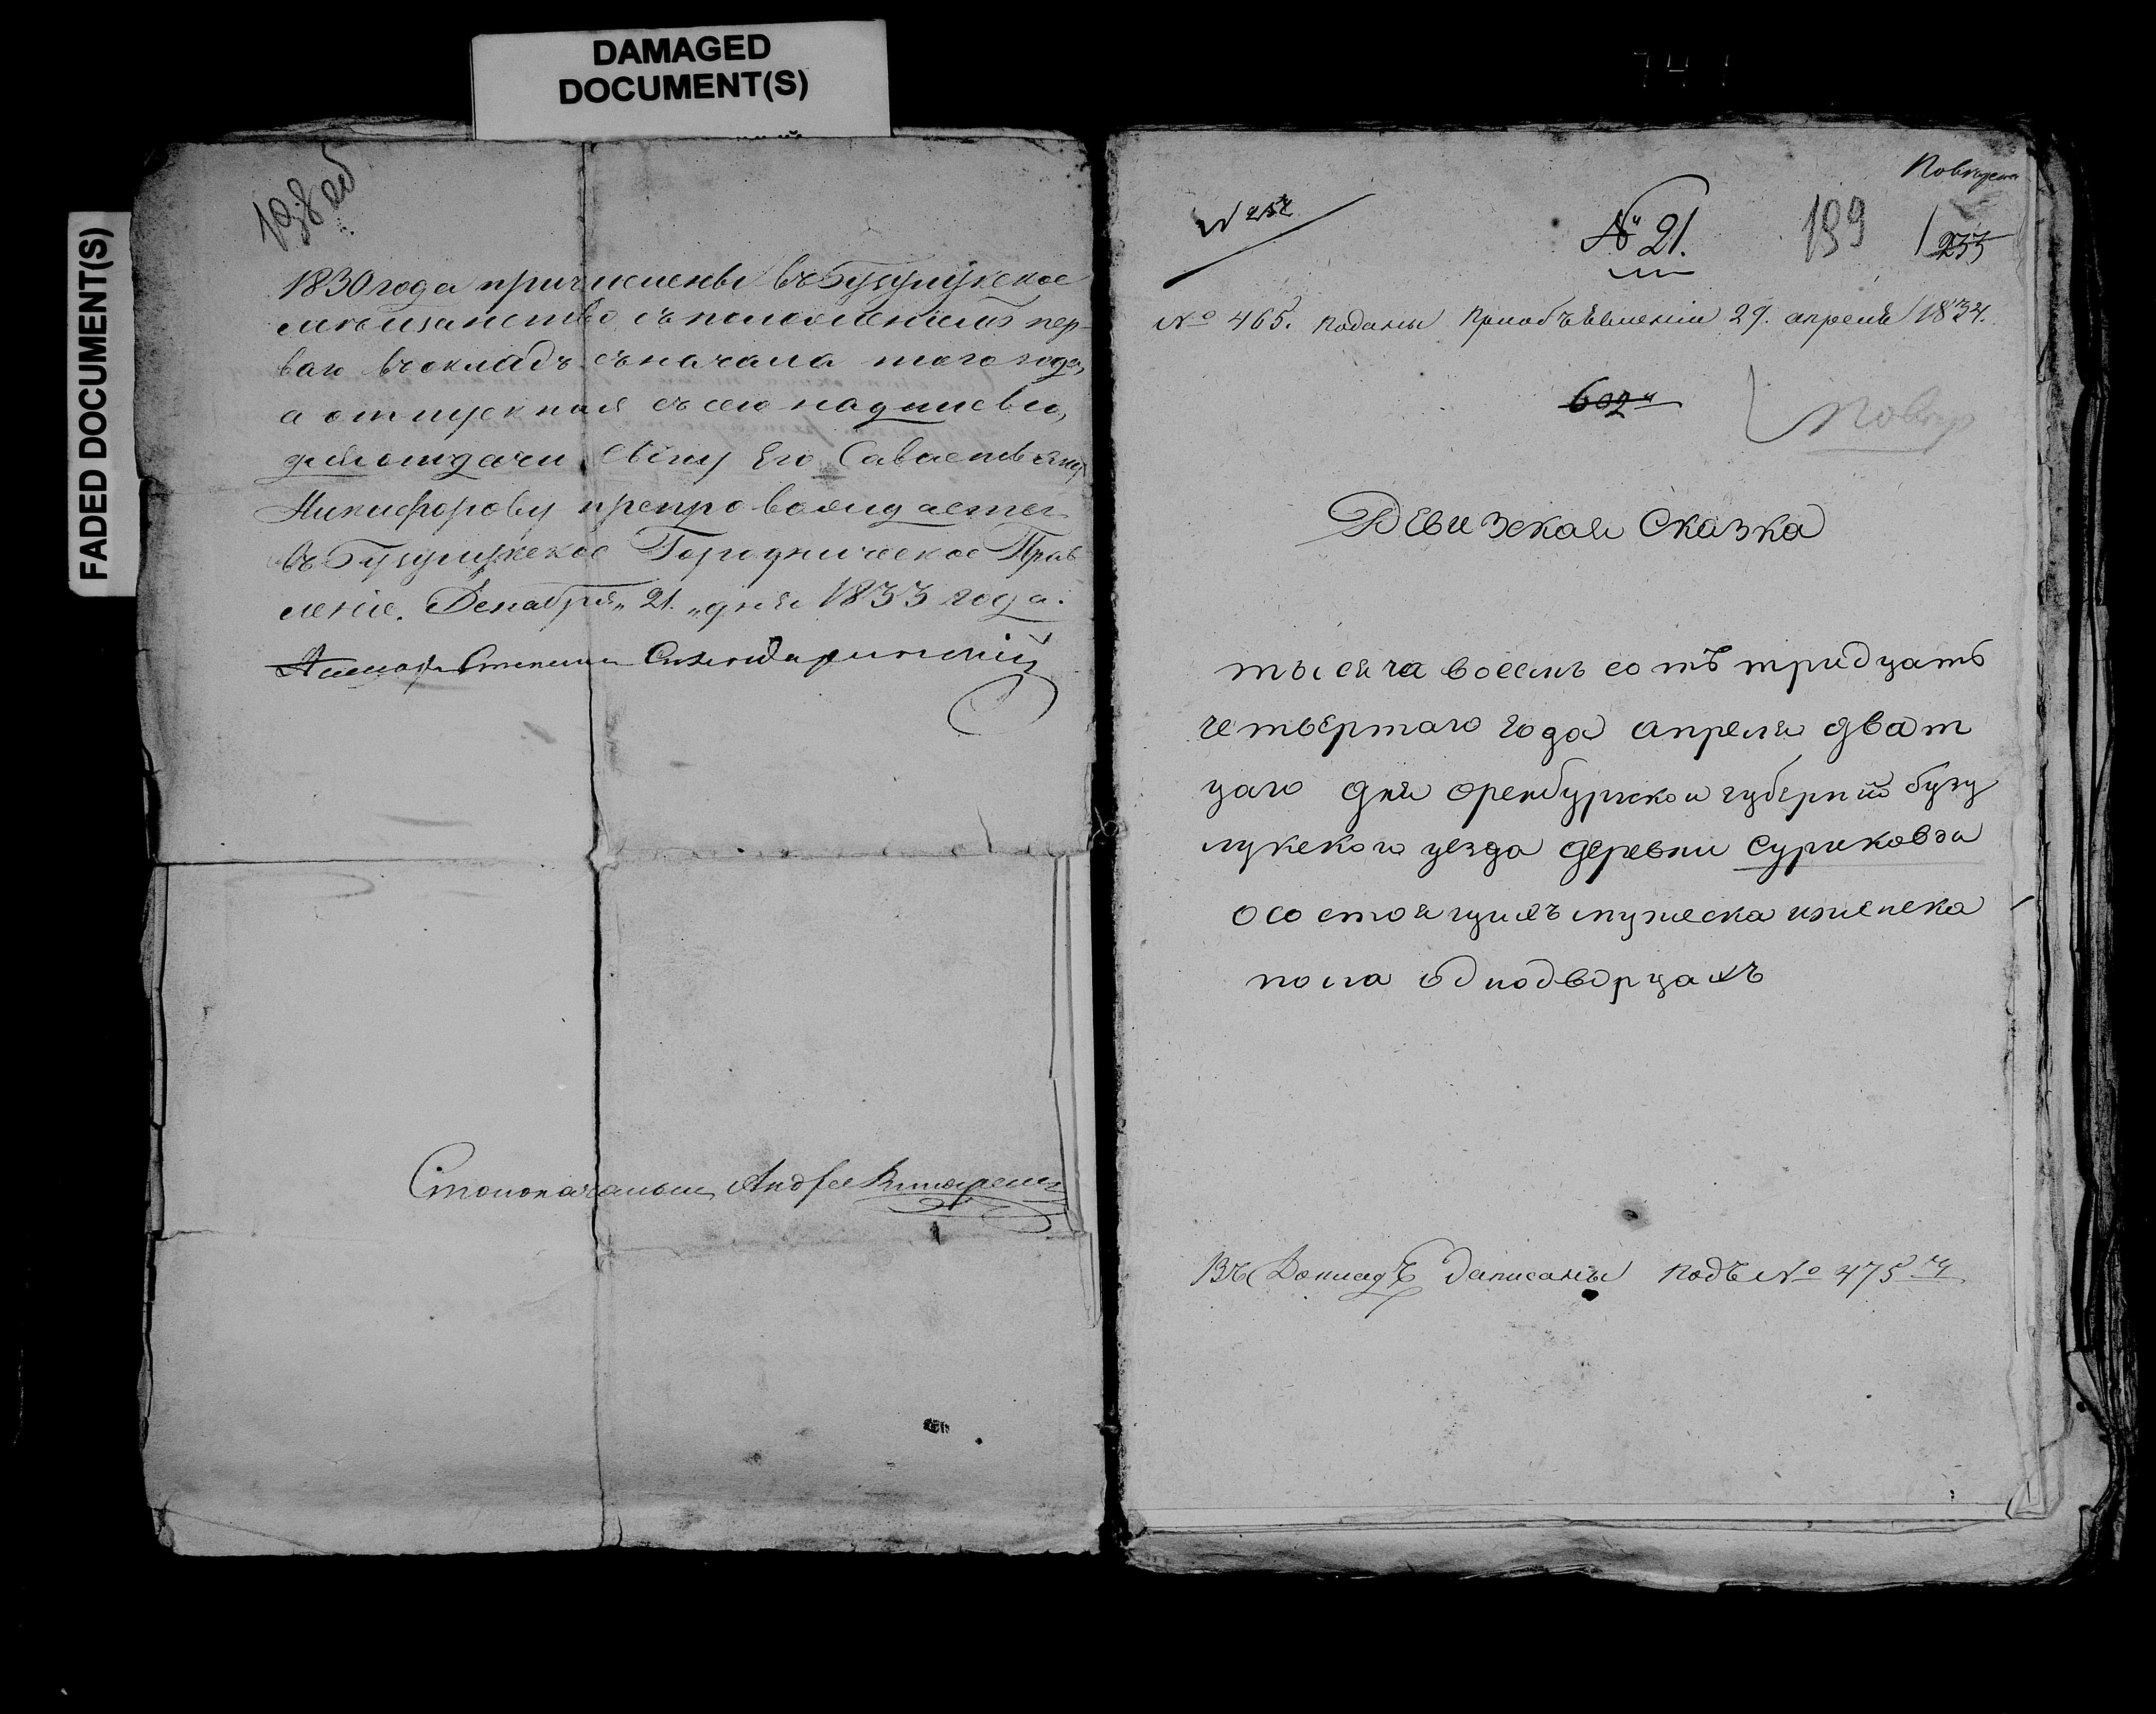 DAMAGED
DOCUMENT(S)
FADED DOCUMENT(S)
198 об
1830 года причислены въ Бузулукское
мещанство съ положениемъ пер-
ваго въ окладъ съ начала того года,
а отпускная съ сею надписью,
для отдачи сыну Его Савастьяну
Никифорову препровождается
въ Бузулукское Городническое Прав
ленiе. Декабря „21„ дня 1833 года.
Столоначальник Андрей
Поверена
№ 252
№ 21.
199
233
№ 465. поданы при объявленiи 29. апреля 1834.
602
Повер
Ревизская Сказка
тысяча восемь сотъ тридцать
четвертаго года апреля дват
цаго дня оренбургской губернiи бузу
лукского уезда деревни Суриковои
о состоящихъ мужеска и женска
пола однодворцахъ
Въ Докладъ записаны подъ № 475